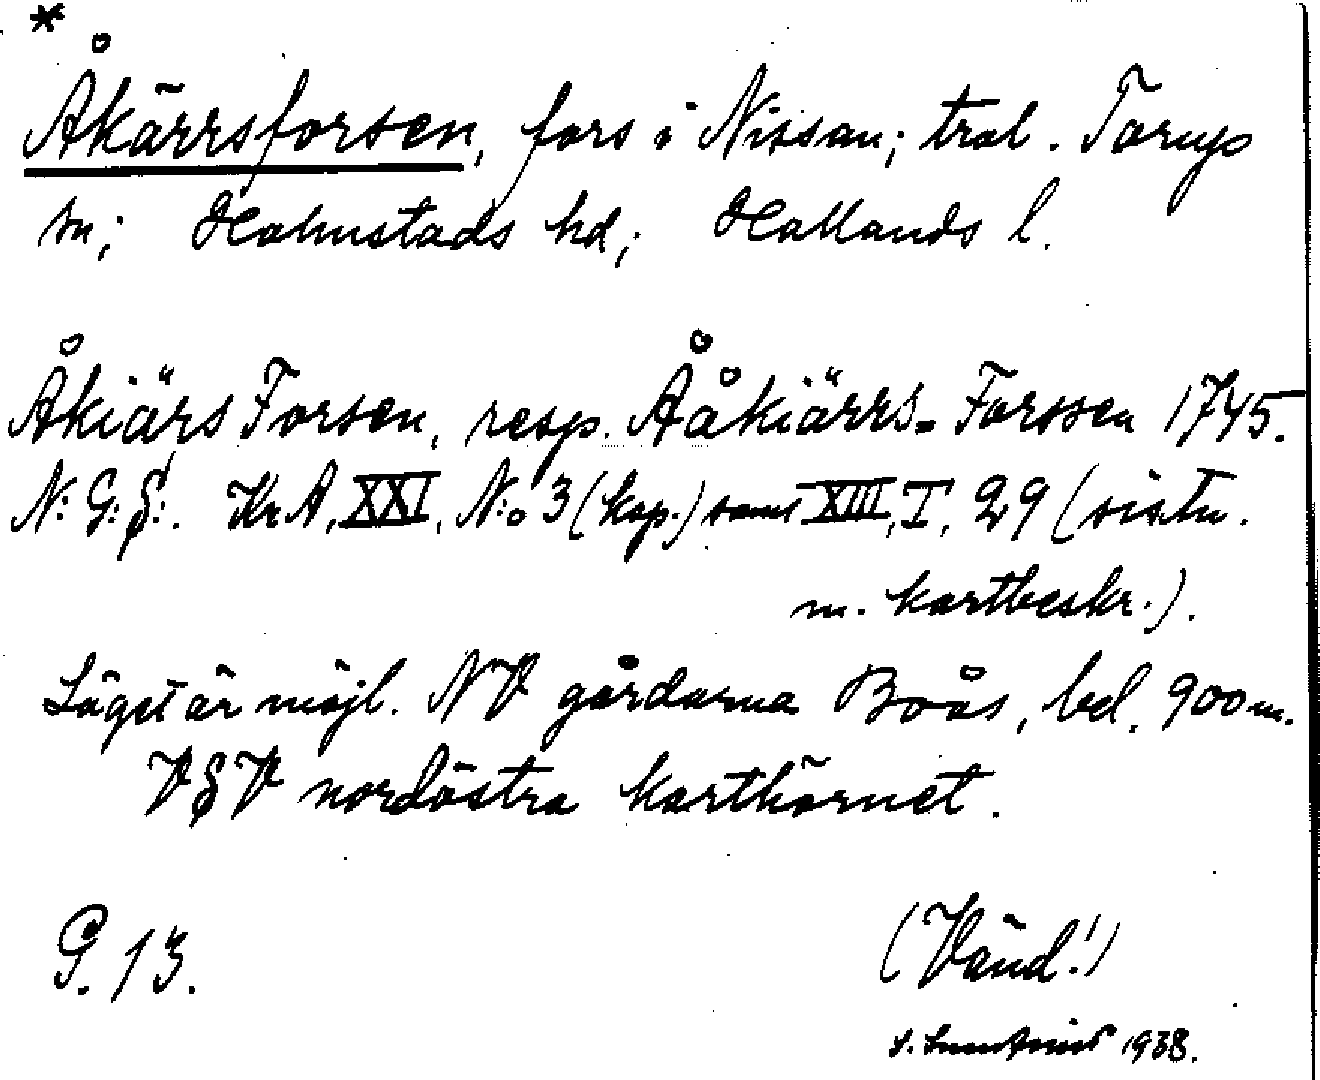 *
Åkärrsforsen, fors i Nissan; trol. Torups
sn; Halmstads hd; Hallands l.
Åkiärs Forsen, resp. Ååkiärrs-Forssen 1745.
N:G:S:. Kr A, XXI, N:o 3 (kop.) samt XIII, I, 29 (sistn.
m. kartbeskr.).
Läget är möjl. NV gårdarna Boås, bel. 900 m.
VSV nordöstra karthörnet.
G. 13.
(Vänd!)
1938.